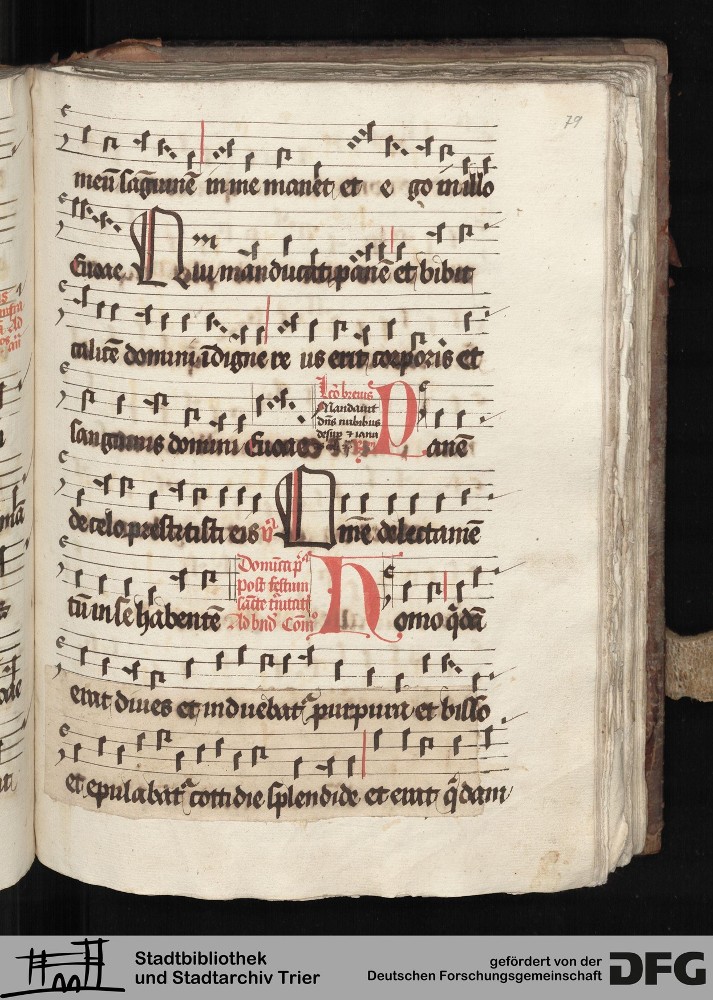 79
meū sāguinē in me manet et e go in illo
Euoae Qui manducat panē et bibit
calicē domini īdigne re us erit corporis et
sanguinis domini Euoae
Lcō breuis
Mandauit
dn̄s nubibus
desup ⁊ ianu
Panē
de celo prestitisti eis v̾ Omē delectamē
tū in se habentē
Domīca pͣ
post festum
sācte trītatꝭ
Ad bnd Com
Homo qͥdā
erat diues et induebatͬ purpura et bisso
et epulabatͬ cottidie splendide et erat qͥdam
Stadtbibliothek
und Stadtarchiv Trier
gefördert von der
Deutschen Forschungsgemeinschaft
DFG